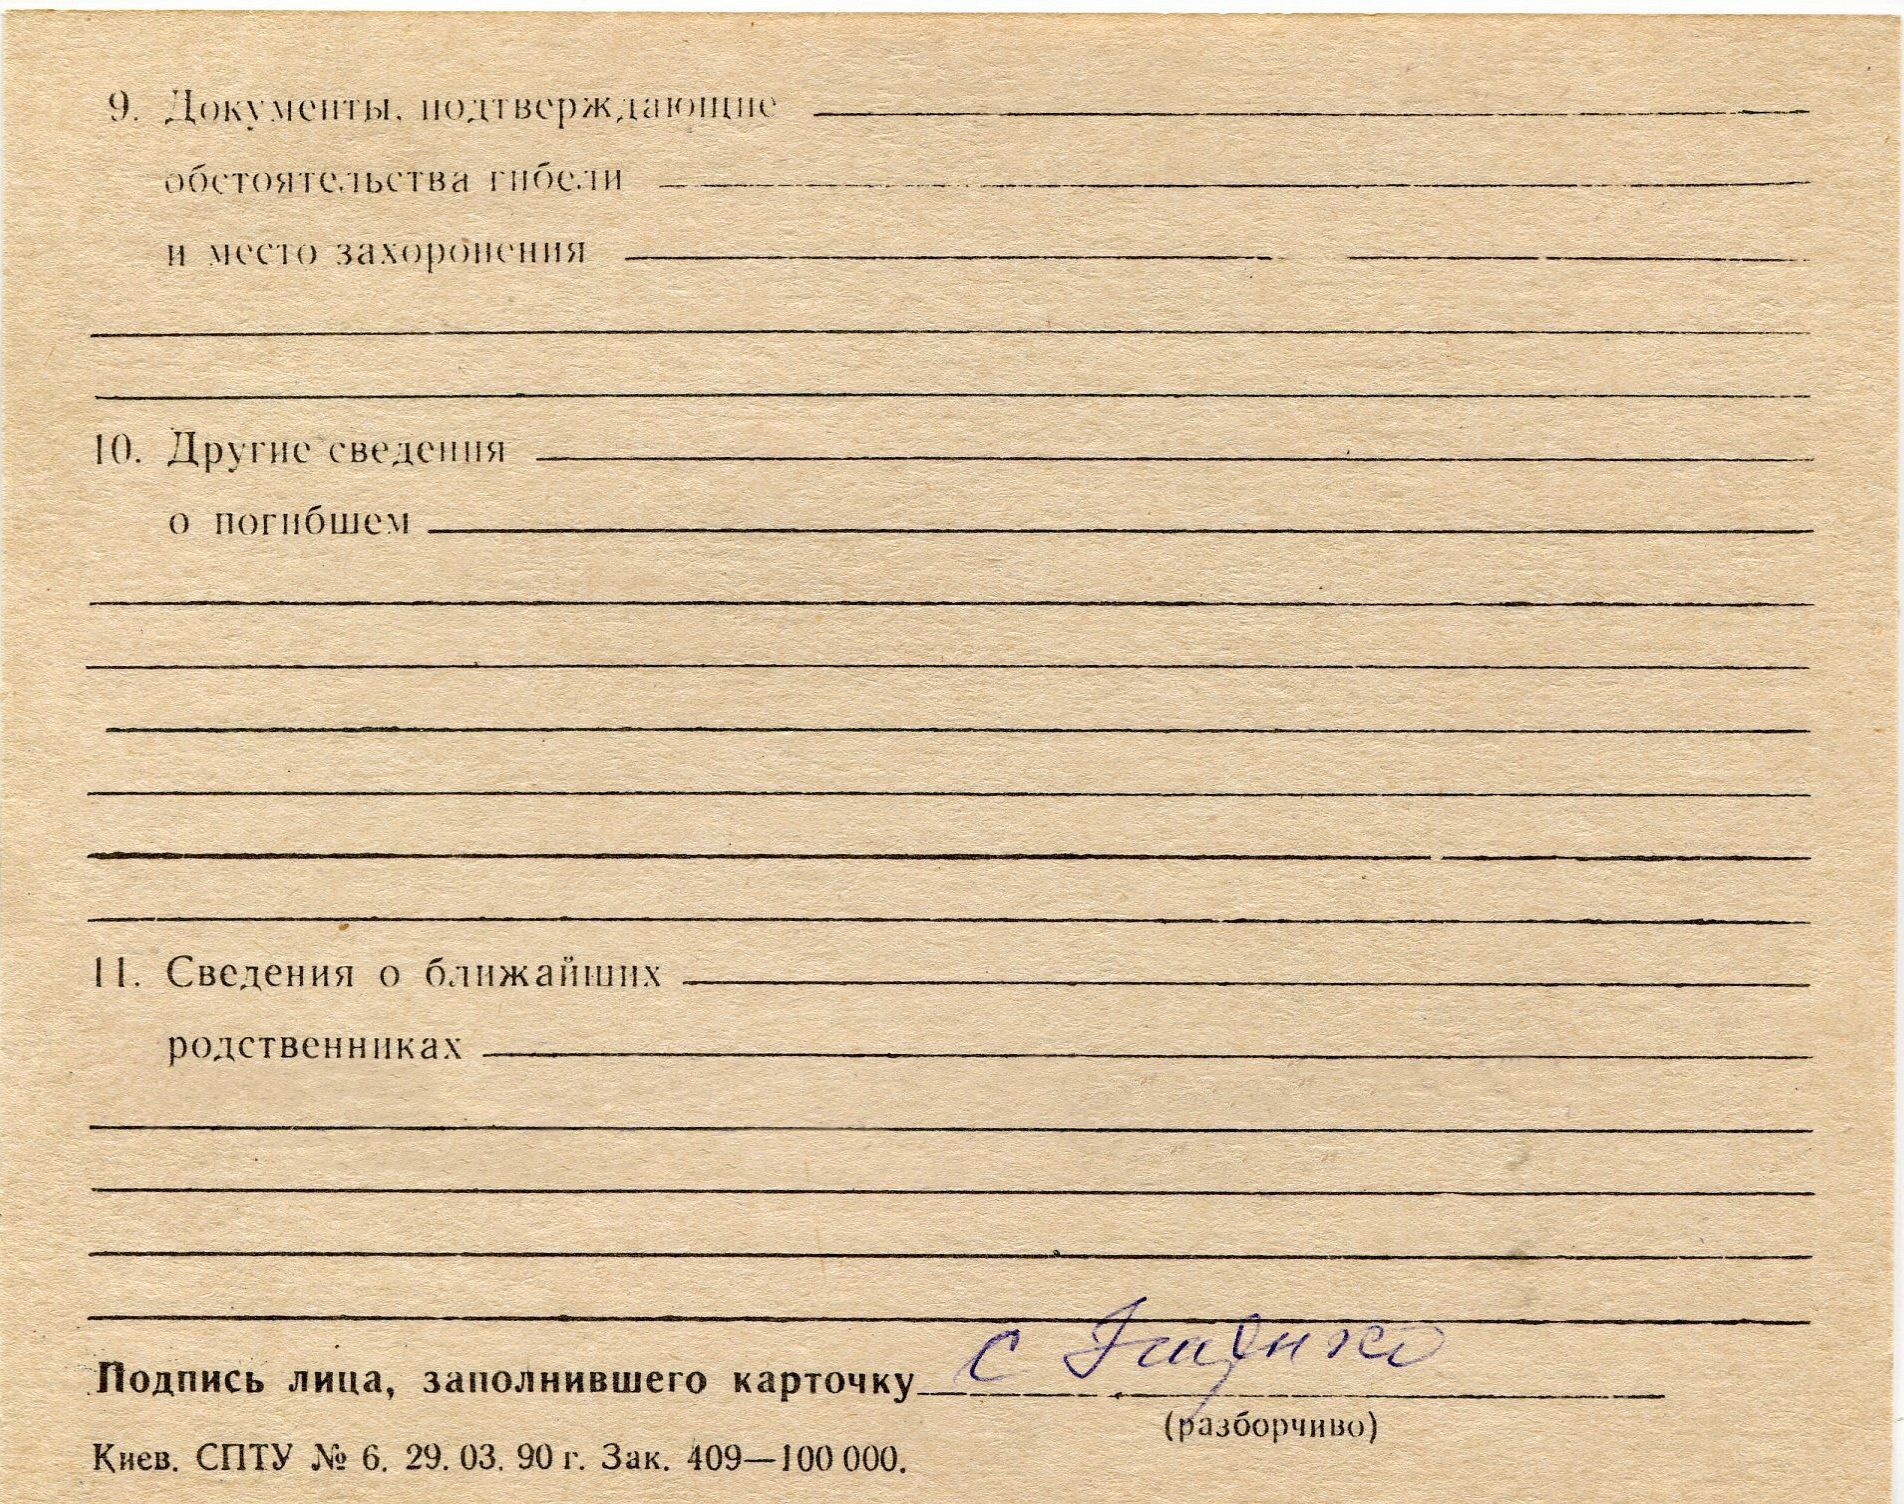 9. Документы, подтверждающие
обстоятельства гибели
и место захоронения
10. Другие сведения
о погибшем
11. Сведения о ближайших
родственниках
Подпись лица, заполнившего карточку С
(разборчиво)
Киев. СПТУ № 6. 29. 03. 90 г. Зак. 409—100 000.